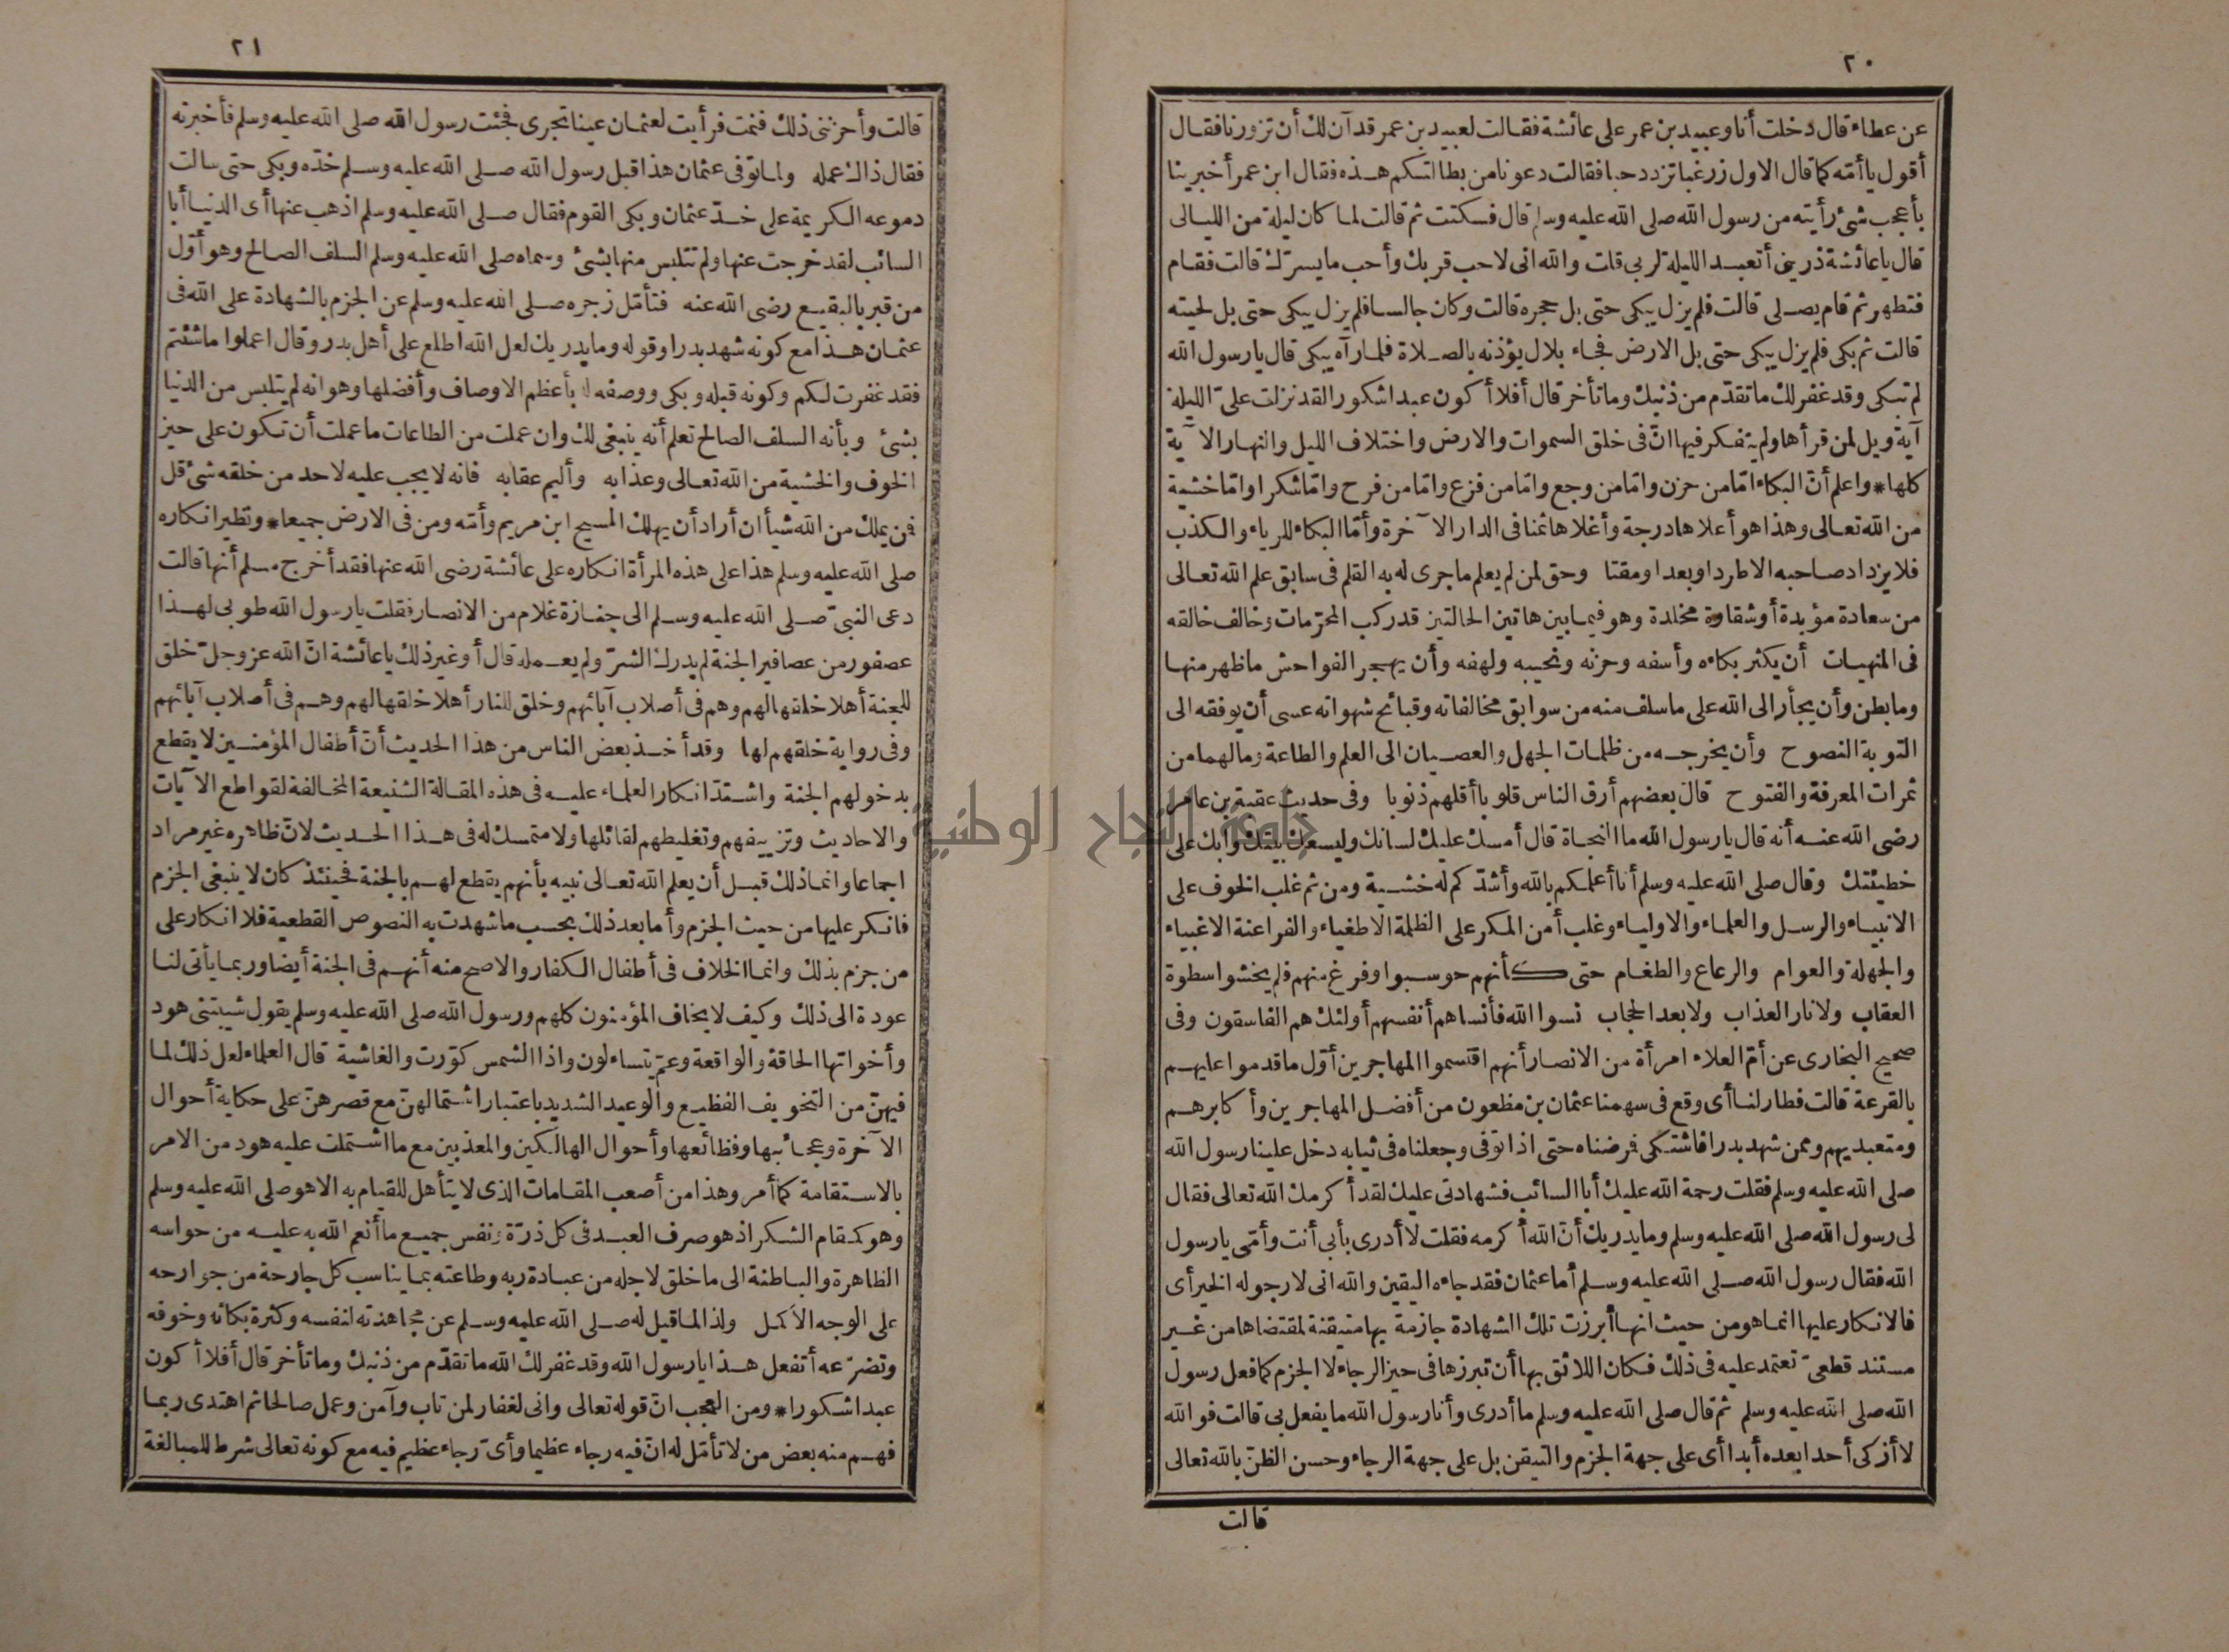 ٢٠
عن عطاء قال دخلت أنا وعبيد بن عمر على عائشة فقالت لعبيد بن عمر قد آن لك أن تزورنا فقال
أقول يا أمّه كما قال الاول زرغبا تزدد حبا فقالت دعونا من بطالتكم هذه فقال ابن عمر أخبرينا
بأعجب شئ رأيته من رسول الله صلى الله عليه وسلم قال فسكتت ثم قالت لما كان ليلة من الليالى
قال يا عائشة ذرينى أتعبد الليلة لربى قلت والله انى لاحب قربك وأحب ما يسرّك قالت فقام
فتطهر ثم قام يصلى قالت فلم يزل يبكى حتى بل حجره قالت وكان جالسا فلم يزل يبكى حتى بل لحيته
قالت ثم بكى فلم يزل يبكى حتى بل الارض فجاء بلال يؤذنه بالصلاة فلما رآه يبكى قال يارسول الله
لم تبكى وقد غفر لك ما تقدّم من ذنبك وما تأخر قال أفلا أكون عبدا شكورا لقد نزلت علىّ الليلة
آية ويل لمن قرأها ولم يتفكر فيها انّ فى خلق السموات والارض واختلاف الليل والنهار الآية
كلها * واعلم أنّ البكاء امّا من حزن وامّا من وجع وامّا من فزع وامّا من فرح وامّا شكرا وامّا خشية
من الله تعالى وهذا هو أعلاها درجة وأغلاها ثمنا فى الدار الآخرة وأمّا البكاء للرياء والكذب
فلا يزداد صاحبه الا طردا وبعدا ومقتا وحق لمن لم يعلم ما جرى له به القلم فى سابق علم الله تعالى
من سعادة مؤبدة أو شقاوة مخلدة وهو فيما بين هاتين الحالتين قد ركب المحرّمات وخالف خالقه
فى المنهيات أن يكثر بكاءه وأسفه وحزنه ونحيبه ولهفه وأن يهجر الفواحش ما ظهر منها
وما بطن وأن يجأر الى الله على ما سلف منه من سوابق مخالفاته وقبائح شهواته عسى أن يوفقه الى
التوبة النصوح وأن يخرجه من ظلمات الجهل والعصيان الى العلم والطاعة وما لهما من
ثمرات المعرفة والفتوح قال بعضهم أرق الناس قلوبا أقلهم ذنوبا وفى حديث عقبة بن عامر
رضى الله عنه أنه قال يارسول الله ما النجاة قال أمسك عليك لسانك وليسعك بيتك وابك على
خطيئتك وقال صلى الله عليه وسلم أنا أعلمكم بالله وأشدّكم له خشية ومن ثم غلب الخوف على
الانبياء والرسل والعلماء والاولياء وغلب أمن المكر على الظلمة الاطغياء والفراعنة الاغبياء
والجهلة والعوام والرعاع والطغام حتى كأنهم حوسبوا وفرغ منهم فلم يخشوا سطوة
العقاب ولا نار العذاب ولا بعد الحجاب نسوا الله فأنساهم أنفسهم أولئك هم الفاسقون وفى
صحيح البخارى عن أمّ العلاء امرأة من الانصار أنهم اقتسموا المهاجرين أوّل ما قدموا عليهم
بالقرعة قالت فطار لنا أى وقع فى سهمنا عثمان بن مظعون من أفضل المهاجرين وأكابرهم
ومتعبديهم وممن شهد بدرا فاشتكى فرضناه حتى اذا توفى وجعلناه فى ثيابه دخل علينا رسول الله
صلى الله عليه وسلم فقلت رحمة الله عليك أبا السائب فشهادتى عليك لقد أكرمك الله تعالى فقال
لى رسول الله صلى الله عليه وسلم وما يدريك أنّ الله أكرمه فقلت لا أدرى بأبى أنت وأمّى يارسول
الله فقال رسول الله صلى الله عليه وسلم أما عثمان فقد جاءه اليقين والله انى لارجو له الخير أى
فالانكار عليها انما هو من حيث انها أبرزت تلك الشهادة جازمة بها متيقنة لمقتضاها من غير
مستند قطعىّ تعتمد عليه فى ذلك فكان اللائق بها أن تبرزها فى حيز الرجاء لا الجزم كما فعل رسول
الله صلى الله عليه وسلم ثم قال صلى الله عليه وسلم ما أدرى وأنا رسول الله ما يفعل بى قالت فوالله
لا أزكى أحدا بعده أبدا أى على جهة الجزم والتيقن بل على جهة الرجاء وحسن الظنّ بالله تعالى
قالت
٢١
قالت وأحزننى ذلك فنمت فرأيت لعثمان عينا تجرى فجئت رسول الله صلى الله عليه وسلم فأخبرته
فقال ذاك عمله ولما توفى عثمان هذا قبل رسول الله صلى الله عليه وسلم خدّه وبكى حتى سالت
دموعه الكريمة على خدّ عثمان وبكى القوم فقال صلى الله عليه وسلم اذهب عنها أى الدنيا أبا
السائب لقد خرجت عنها ولم تتلبس منها بشئ وسماه صلى الله عليه وسلم السلف الصالح وهو أوّل
من قبر بالبقيع رضى الله عنه فتأمّل زجره صلى الله عليه وسلم عن الجزم بالشهادة على الله فى
عثمان هذا مع كونه شهد بدرا وقوله وما يدريك لعل الله اطلع على أهل بدر وقال اعملوا ما شئتم
فقد غفرت لكم وكونه قبله وبكى ووصفه له بأعظم الاوصاف وأفضلها وهو انه لم يتلبس من الدنيا
بشئ وبأنه السلف الصالح تعلم أنه ينبغى لك وان عملت من الطاعات ما عملت أن تكون على حيز
الخوف والخشية من الله تعالى وعذابه وأليم عقابه فانه لا يجب عليه لاحد من خلقه شئ قل
فمن يملك من الله شيأ ان أراد أن يهلك المسيح ابن مريم وأمّه ومن فى الارض جميعا * ونظير انكاره
صلى الله عليه وسلم هذا على هذه المرأة انكاره على عائشة رضى الله عنها فقد أخرج مسلم أنها قالت
دعى النبىّ صلى الله عليه وسلم الى جنازة غلام من الانصار فقلت يارسول الله طوبى لهذا
عصفور من عصافير الجنة لم يدرك الشرّ ولم يعمله قال أو غير ذلك يا عائشة انّ الله عز وجلّ خلق
للجنة أهلا خلقها لهم وهم فى أصلاب آبائهم وخلق للنار أهلا خلقها لهم وهم فى أصلاب آبائهم
وفى رواية خلقهم لها وقد أخذ بعض الناس من هذا الحديث أنّ أطفال المؤمنين لا يقطع
بدخولهم الجنة واشتدّ انكار العلماء عليه فى هذه المقالة الشنيعة المخالفة لقواطع الآيات
والاحاديث وتزييفهم وتغليطهم لقائلها ولا متمسك له فى هذا الحديث لانّ ظاهره غير مراد
اجماعا وانما ذلك قبل أن يعلم الله تعالى نبيه بأنهم يقطع لهم بالجنة فحينئذ كان لا ينبغى الجزم
فانكر عليها من حيث الجزم وأما بعد ذلك بحسب ما شهدت به النصوص القطعية فلا انكار على
من جزم بذلك وانما الخلاف فى أطفال الكفار والاصح منه أنهم فى الجنة أيضا وربما يأتى لنا
عودة الى ذلك وكيف لا يخاف المؤمنون كلهم ورسول الله صلى الله عليه وسلم يقول شيبتنى هود
وأخواتها الحاقة والواقعة وعمّ يتساءلون واذا الشمس كوّرت والغاشية قال العلماء لعل ذلك لما
فيهنّ من التخويف الفظيع والوعيد الشديد باعتبار اشتمالهنّ مع قصرهنّ على حكاية أحوال
الآخرة وعجائبها وفظائعها وأحوال الهالكين والمعذبين مع ما اشتملت عليه هود من الامر
بالاستقامة كما أمر وهذا من أصعب المقامات الذى لا يتأهل للقيام به الا هو صلى الله عليه وسلم
وهو كمقام الشكر اذ هو صرف العبد فى كل ذرّة ونفس جميع ما أنعم الله به عليه من حواسه
الظاهرة والباطنة الى ما خلق لاجله من عبادة ربه وطاعته بما يناسب كل جارحة من جوارحه
على الوجه الاكمل ولذا لما قيل له صلى الله عليه وسلم عن مجاهدته لنفسه وكثرة بكائه وخوفه
وتضرّعه أتفعل هذا يارسول الله وقد غفر لك الله ما تقدّم من ذنبك وما تأخر قال أفلا أكون
عبدا شكورا * ومن العجب انّ قوله تعالى وانى لغفار لمن تاب وآمن وعمل صالحا ثم اهتدى ربما
فهم منه بعض من لا تأمّل له انّ فيه رجاء عظيما وأىّ رجاء عظيم فيه مع كونه تعالى شرط للمبالغة
جامعة النجاح الوطنية